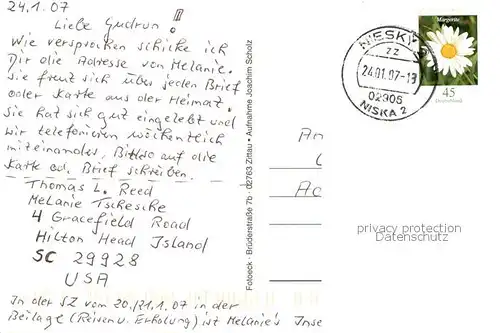 24.1.07
Liebe Gudrun!
Wie versprochen schicke ich
Dir die Adresse von Melanie.
Sie freut sich über jeden Brief
oder Karte aus der Heimat.
Sie hat sich gut eingelebt und
wir telefonieren wöchentlich
miteinander, Bitte auf die
Karte od. Brief schreiben.
Thomas L. Reed
Melanie Tschesche
4 Gracefield Road
Hilton Head Island
SC 29928
USA
In der SZ vom 20./21.1.07 in der
Beilage (Reisen u. Erholung) ist Melanie's Inse
Fotoeck · Brüderstraße 7b · 02763 Zittau · Aufnahme Joachim Scholz
NIESKY
ZZ
24.01.07-18
02905
NISKA 2
Margerite
45
Deutschland
An
privacy protection
Datenschutz